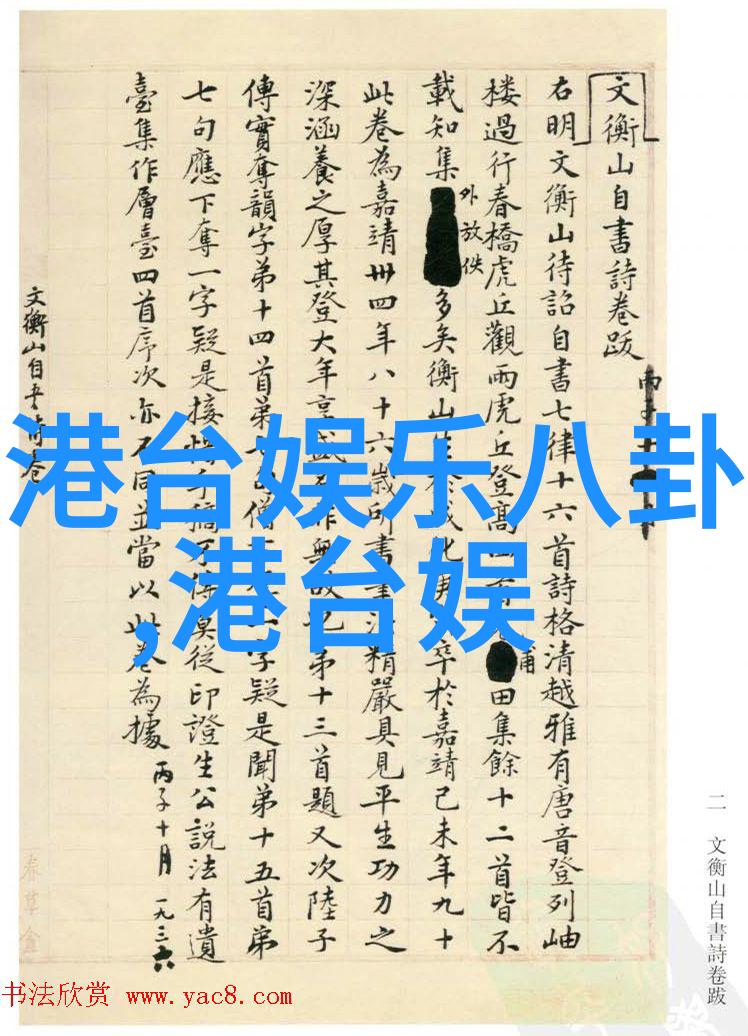 文衡山自書詩卷跋
丙子十
右明文衡山待詔自書七律十六首詩格清越雅有唐音登列岫
楼過行春橋虎丘觀雨虎丘登高
田集餘十二首皆不
載知集
外放佚
多矣衡山
卒於嘉靖己未年九十
此卷為嘉靖卅四年八十六歲所書書法精嚴具見平生功力之
深涵養之厚其登大年享盛
第十三首題又次陸子
傳實奪韻字弟十四首弟七句僧
字疑是聞弟十五首弟
七句應下奪一字疑是接
臭從印證生公説法有遺
臺集作層臺四首序次亦不同並當以此卷為據
丙子十月 一九三六
文衡山自書詩卷
二 文衡山自書詩卷跋
港台娱乐八卦
,港台娱
书法欣赏 www.yac8.com